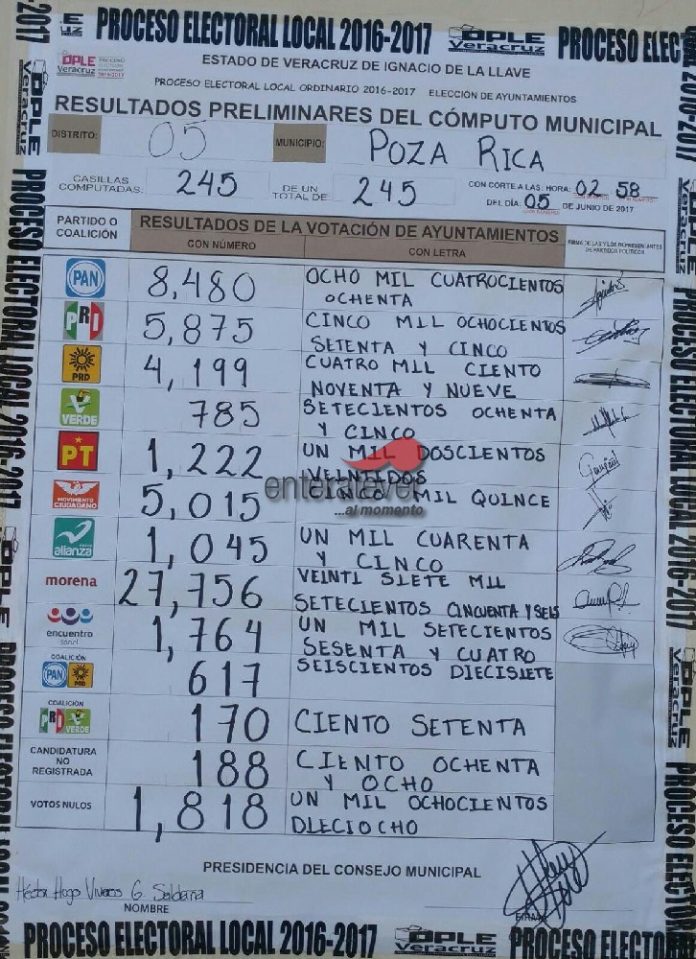 PROCESO ELECTORAL LOCAL 2016-2017 OPLE Veracruz PROCESO ELECT
OPLE Veracruz
ESTADO DE VERACRUZ DE IGNACIO DE LA LLAVE
PROCESO ELECTORAL LOCAL ORDINARIO 2016-2017 ELECCIÓN DE AYUNTAMIENTOS
RESULTADOS PRELIMINARES DEL CÓMPUTO MUNICIPAL
DISTRITO: 05 MUNICIPIO: POZA RICA
CASILLAS COMPUTADAS: 245 DE UN TOTAL DE 245 CON CORTE A LAS: HORA: 02 58
DEL DÍA 05 DE JUNIO DE 2017
PARTIDO O COALICIÓN RESULTADOS DE LA VOTACIÓN DE AYUNTAMIENTOS
CON NÚMERO CON LETRA
PAN 8,480 OCHO MIL CUATROCIENTOS
OCHENTA
PRD 5,875 CINCO MIL OCHOCIENTOS
SETENTA Y CINCO
PRD 4,199 CUATRO MIL CIENTO
NOVENTA Y NUEVE
VERDE 785 SETECIENTOS OCHENTA
Y CINCO
PT 1,222 UN MIL DOSCIENTOS
VEINTIDOS
MOVIMIENTO CIUDADANO 5,015 CINCO MIL QUINCE
enteratever
...al momento
alianza 1,045 UN MIL CUARENTA
Y CINCO
morena 27,756 VEINTI SIETE MIL
SETECIENTOS CINCUENTA Y SEIS
encuentro social 1,764 UN MIL SETECIENTOS
SESENTA Y CUATRO
COALICIÓN
PAN PRD 617 SEISCIENTOS DIECISIETE
COALICIÓN
PRD VERDE 170 CIENTO SETENTA
CANDIDATURA NO REGISTRADA 188 CIENTO OCHENTA
Y OCHO
VOTOS NULOS 1,818 UN MIL OCHOCIENTOS
DIECIOCHO
PRESIDENCIA DEL CONSEJO MUNICIPAL
Héctor Hugo Viveros G. Saldaña
NOMBRE
FIRMA
PROCESO ELECTORAL LOCAL 2016-2017 OPLE Veracruz PROCESO ELECTOR
2017 OPLE Veracruz PROCESO ELECTORAL LOCAL 2016-2017 OPLE PROCESO ELECTORAL LOCAL
OPLE Veracruz PROCESO ELECTORAL LOCAL 2016-2017 OPLE Veracruz PROCESO ELECTOR